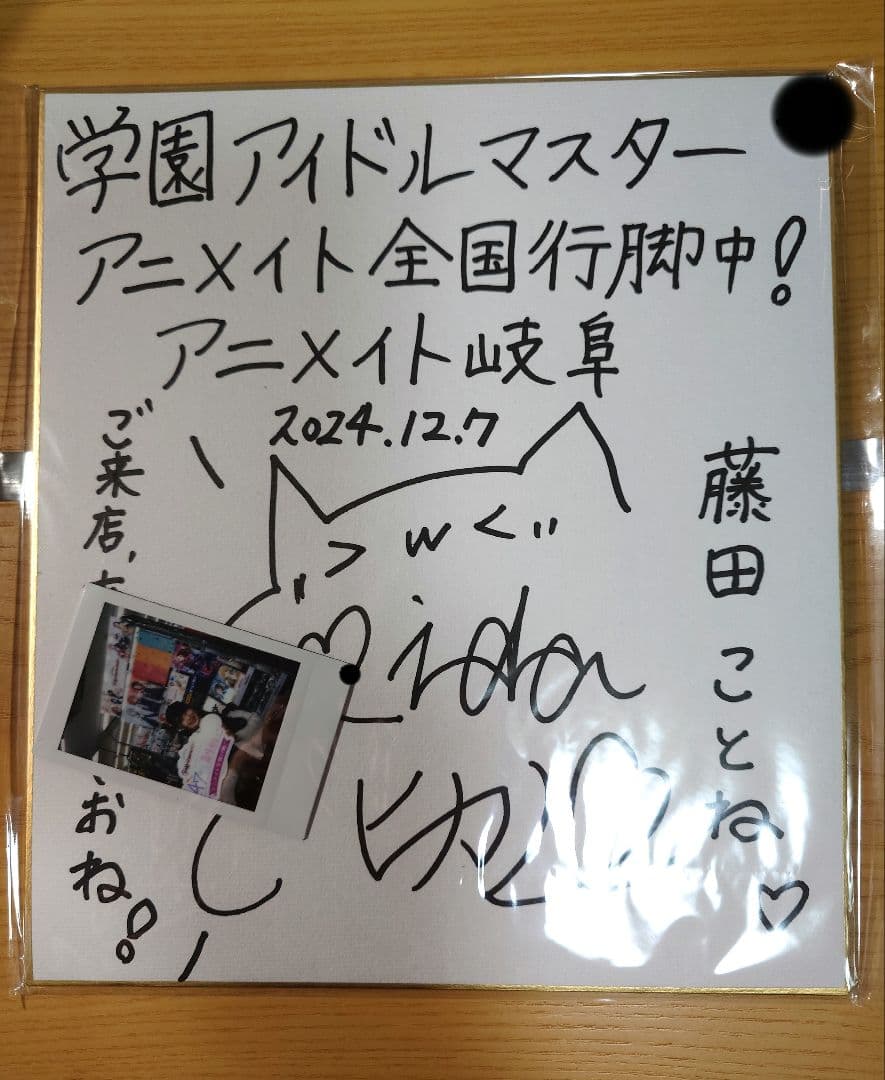 学園アイドルマスター
アニメイト全国行脚中!
アニメイト岐阜
2024.12.7
藤田ことね♡
ご来店,
おね!
> w <
ヒカル